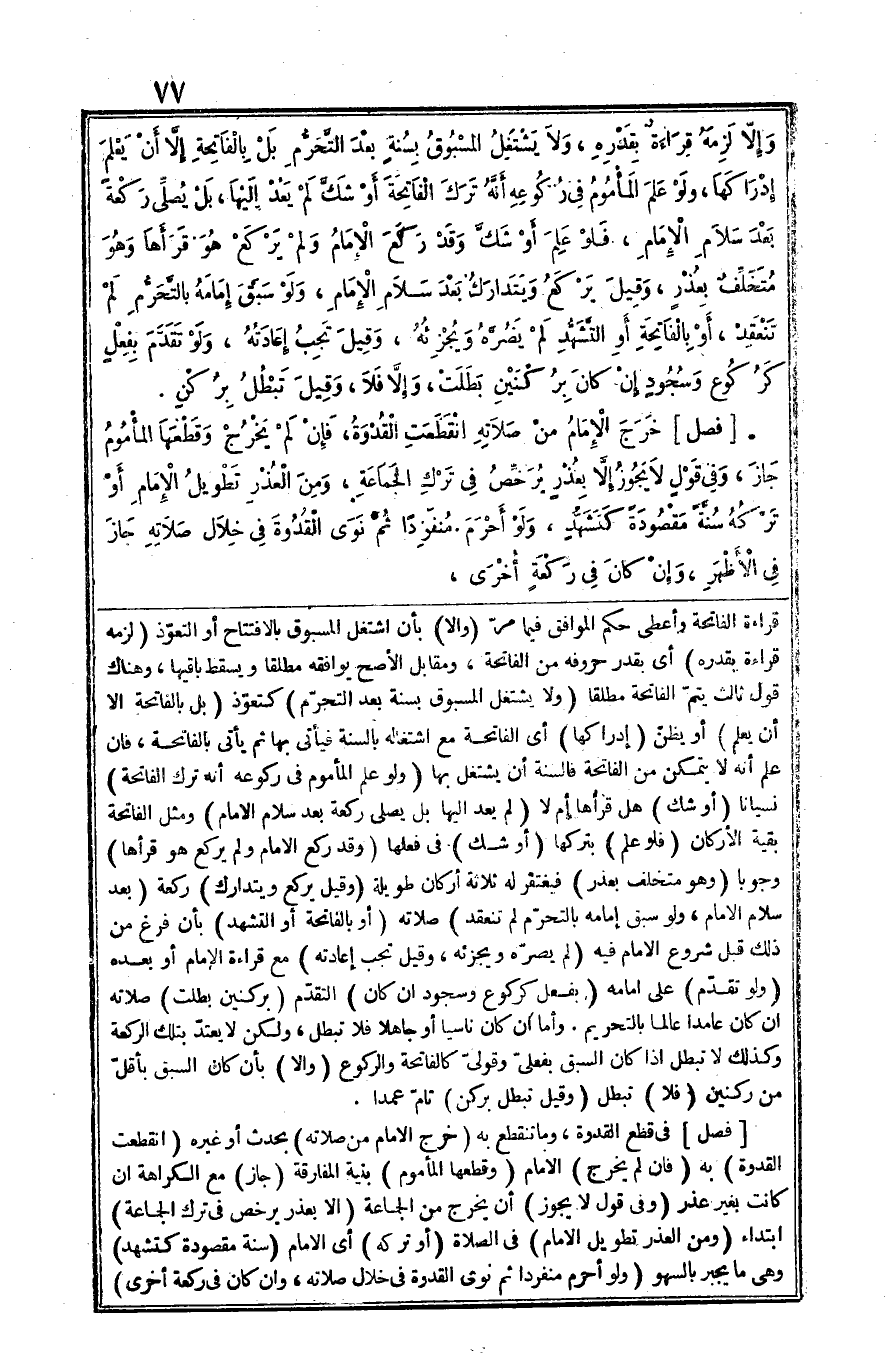 ٧٧
وَإِلَّا لَزِمَهُ قِرَاءَةٌ بِقَدْرِهِ ، وَلَا يَشْتَغِلُ المَسْبُوقُ بِسُنَّةٍ بَعْدَ التَّحَرُّمِ بَلْ بِالْفَاتِحَةِ إِلَّا أَنْ يَعْلَمَ
إِدْرَاكَهَا ، وَلَوْ عَلِمَ المَأْمُومُ فِى رُكُوعِهِ أَنَّهُ تَرَكَ الْفَاتِحَةَ أَوْ شَكَّ لَمْ يَعُدْ إِلَيْهَا ، بَلْ يُصَلِّى رَكْعَةً
بَعْدَ سَلَامِ الْإِمَامِ ، فَلَوْ عَلِمَ أَوْ شَكَّ وَقَدْ رَكَعَ الْإِمَامُ وَلَمْ يَرْكَعْ هُوَ قَرَأَهَا وَهُوَ
مُتَخَلِّفٌ بِعُذْرٍ ، وَقِيلَ يَرْكَعُ وَيَتَدَارَكُ بَعْدَ سَلَامِ الْإِمَامِ ، وَلَوْ سَبَقَ إِمَامَهُ بِالتَّحَرُّمِ لَمْ
تَنْعَقِدْ ، أَوْ بِالْفَاتِحَةِ أَوِ التَّشَهُّدِ لَمْ يَضُرَّهُ وَيُجْزِئُهُ ، وَقِيلَ تَجِبُ إِعَادَتُهُ ، وَلَوْ تَقَدَّمَ بِفِعْلٍ
كَرُكُوعٍ وَسُجُودٍ إِنْ كانَ بِرُكْنَيْنِ بَطَلَتْ ، وَإِلَّا فَلَا ، وَقِيلَ تَبْطُلُ بِرُكْنٍ .
. [ فصل ] خَرَجَ الْإِمَامُ مِنْ صَلَاتِهِ انْقَطَعَتِ الْقُدْوَةُ ، فَإِنْ لَمْ يَخْرُجْ وَقَطَعَهَا المَأْمُومُ
جَازَ ، وَفِى قَوْلٍ لَا يَجُوزُ إِلَّا بِعُذْرٍ يُرَخِّصُ فِى تَرْكِ الجَمَاعَةِ ، وَمِنَ الْعُذْرِ تَطْوِيلُ الْإِمَامِ أَوْ
تَرْكُهُ سُنَّةً مَقْصُودَةً كَتَشَهُّدٍ ، وَلَوْ أَحْرَمَ مُنْفَرِدًا ثُمَّ نَوَى الْقُدْوَةَ فِى خِلَالِ صَلَاتِهِ جَازَ
فِى الْأَظْهَرِ ، وَإِنْ كانَ فِى رَكْعَةٍ أُخْرَى ،
قراءة الفاتحة وأعطى حكم الموافق فيما مرّ (والا) بأن اشتغل المسبوق بالافتتاح أو التعوّذ ( لزمه
قراءة بقدره ) أى بقدر حروفه من الفاتحة ، ومقابل الأصح يوافقه مطلقا ويسقط باقيها ، وهناك
قول ثالث يتمّ الفاتحة مطلقا ( ولا يشتغل المسبوق بسنة بعد التحرّم ) كتعوّذ ( بل بالفاتحة الا
أن يعلم ) أو يظنّ ( إدراكها ) أى الفاتحة مع اشتغاله بالسنة فيأتى بها ثم يأتى بالفاتحة ، فان
علم أنه لا يتمكن من الفاتحة فالسنة أن يشتغل بها ( ولو علم المأموم فى ركوعه أنه ترك الفاتحة )
نسيانا ( أو شك ) هل قرأها أم لا ( لم يعد اليها بل يصلى ركعة بعد سلام الامام ) ومثل الفاتحة
بقية الأركان ( فلو علم ) بتركها ( أو شك ) فى فعلها ( وقد ركع الامام ولم يركع هو قرأها )
وجوبا ( وهو متخلف بعذر ) فيغتفر له ثلاثة أركان طويلة ( وقيل يركع ويتدارك ) ركعة ( بعد
سلام الامام ، ولو سبق إمامه بالتحرّم لم تنعقد ) صلاته ( أو بالفاتحة أو التشهد ) بأن فرغ من
ذلك قبل شروع الامام فيه ( لم يضرّه ويجزئه ، وقيل تجب إعادته ) مع قراءة الإمام أو بعده
( ولو تقدّم ) على امامه ( بفعل كركوع وسجود ان كان ) التقدّم ( بركنين بطلت ) صلاته
ان كان عامدا عالما بالتحريم . وأما ان كان ناسيا أو جاهلا فلا تبطل ، ولكن لا يعتدّ بتلك الركعة
وكذلك لا تبطل اذا كان السبق بفعلىّ وقولىّ كالفاتحة والركوع ( والا ) بأن كان السبق بأقلّ
من ركنين ( فلا ) تبطل ( وقيل تبطل بركن ) تامّ عمدا .
[ فصل ] فى قطع القدوة ، وما تنقطع به ( خرج الامام من صلاته ) بحدث أو غيره ( انقطعت
القدوة ) به ( فان لم يخرج ) الامام ( وقطعها المأموم ) بنية المفارقة ( جاز ) مع الكراهة ان
كانت بغير عذر ( وفى قول لا يجوز ) أن يخرج من الجماعة ( الا بعذر يرخص فى ترك الجماعة )
ابتداء ( ومن العذر تطويل الامام ) فى الصلاة ( أو تركه ) أى الامام ( سنة مقصودة كتشهد )
وهى ما يجبر بالسهو ( ولو أحرم منفردا ثم نوى القدوة فى خلال صلاته ، وان كان فى ركعة أخرى )